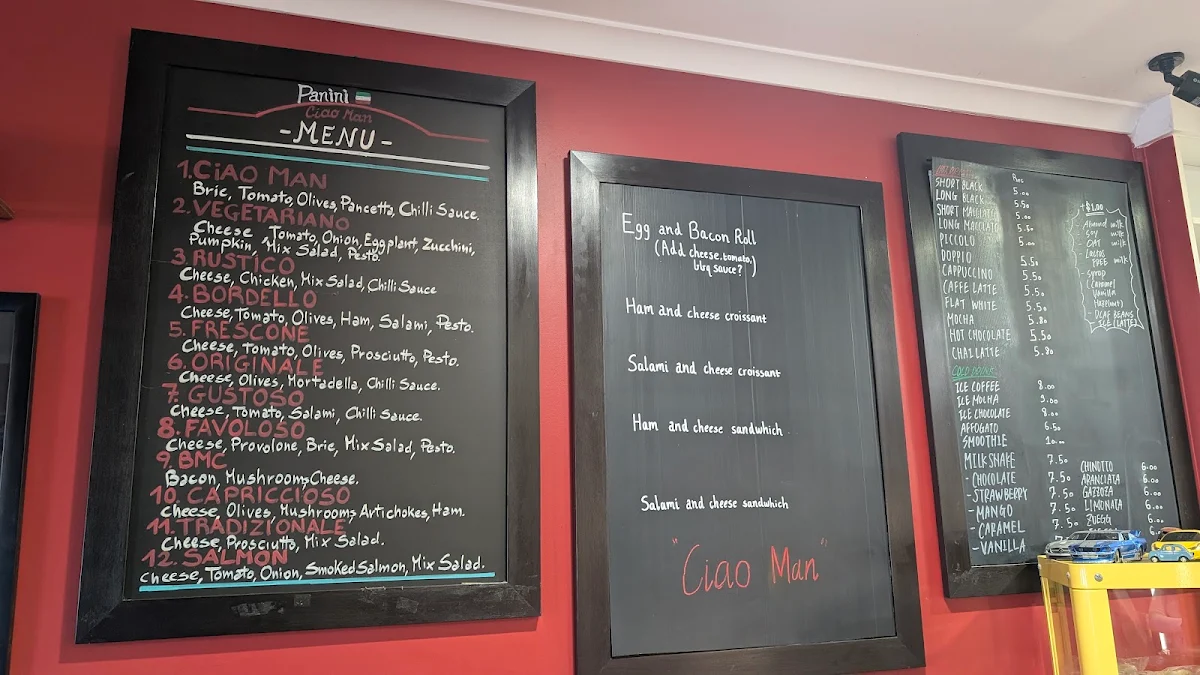 Panini
Ciao Man
-MENU-
1. CiAO MAN
Brie, Tomato, Olives, Pancetta, Chilli Sauce.
2. VEGETARIANO
Cheese, Tomato, Onion, Eggplant, Zucchini,
Pumpkin, Mix Salad, Pesto.
3. RUSTICO
Cheese, Chicken, Mix Salad, Chilli Sauce
4. BORDELLO
Cheese, Tomato, Olives, Ham, Salami, Pesto.
5. FRESCONE
Cheese, Tomato, Olives, Prosciutto, Pesto.
6. ORIGINALE
Cheese, Olives, Mortadella, Chilli Sauce.
7. GUSTOSO
Cheese, Tomato, Salami, Chilli Sauce.
8. FAVOLOSO
Cheese, Provolone, Brie, Mix Salad, Pesto.
9. BMC
Bacon, Mushrooms, Cheese.
10. CAPRICCIOSO
Cheese, Olives, Mushrooms, Artichokes, Ham.
11. TRADIZIONALE
Cheese, Prosciutto, Mix Salad.
12. SALMON
Cheese, Tomato, Onion, Smoked Salmon, Mix Salad.
Egg and Bacon Roll
(Add cheese, tomato,
bbq sauce?)
Ham and cheese croissant
Salami and cheese croissant
Ham and cheese sandwhich
Salami and cheese sandwhich
"Ciao Man"
SHORT BLACK 5.00
LONG BLACK 5.50
SHORT MACCHIATO 5.00
LONG MACCHIATO 5.50
PICCOLO 5.00
DOPPIO 5.50
CAPPUCCINO 5.50
CAFFE LATTE 5.50
FLAT WHITE 5.50
MOCHA 5.80
HOT CHOCOLATE 5.50
CHAI LATTE 5.80
+$1.00
- Almond milk
- Soy milk
- OAT milk
- Lactos FREE milk
- Syrop
(Caramel
Vanilla
Hazelnut)
- DCAF BEANS
COLD DRINK
ICE COFFEE 8.00
ICE MOCHA 9.00
ICE CHOCOLATE 8.00
AFFOGATO 6.50
SMOOTHIE 10.00
MILKSHAKE 7.50
- CHOCOLATE 7.50
- STRAWBERRY 7.50
- MANGO 7.50
- CARAMEL 7.50
- VANILLA
CHINOTTO 6.00
ARANCIATA 6.00
GAZZOZA 6.00
LIMONATA 6.00
ZUEGG 6.00